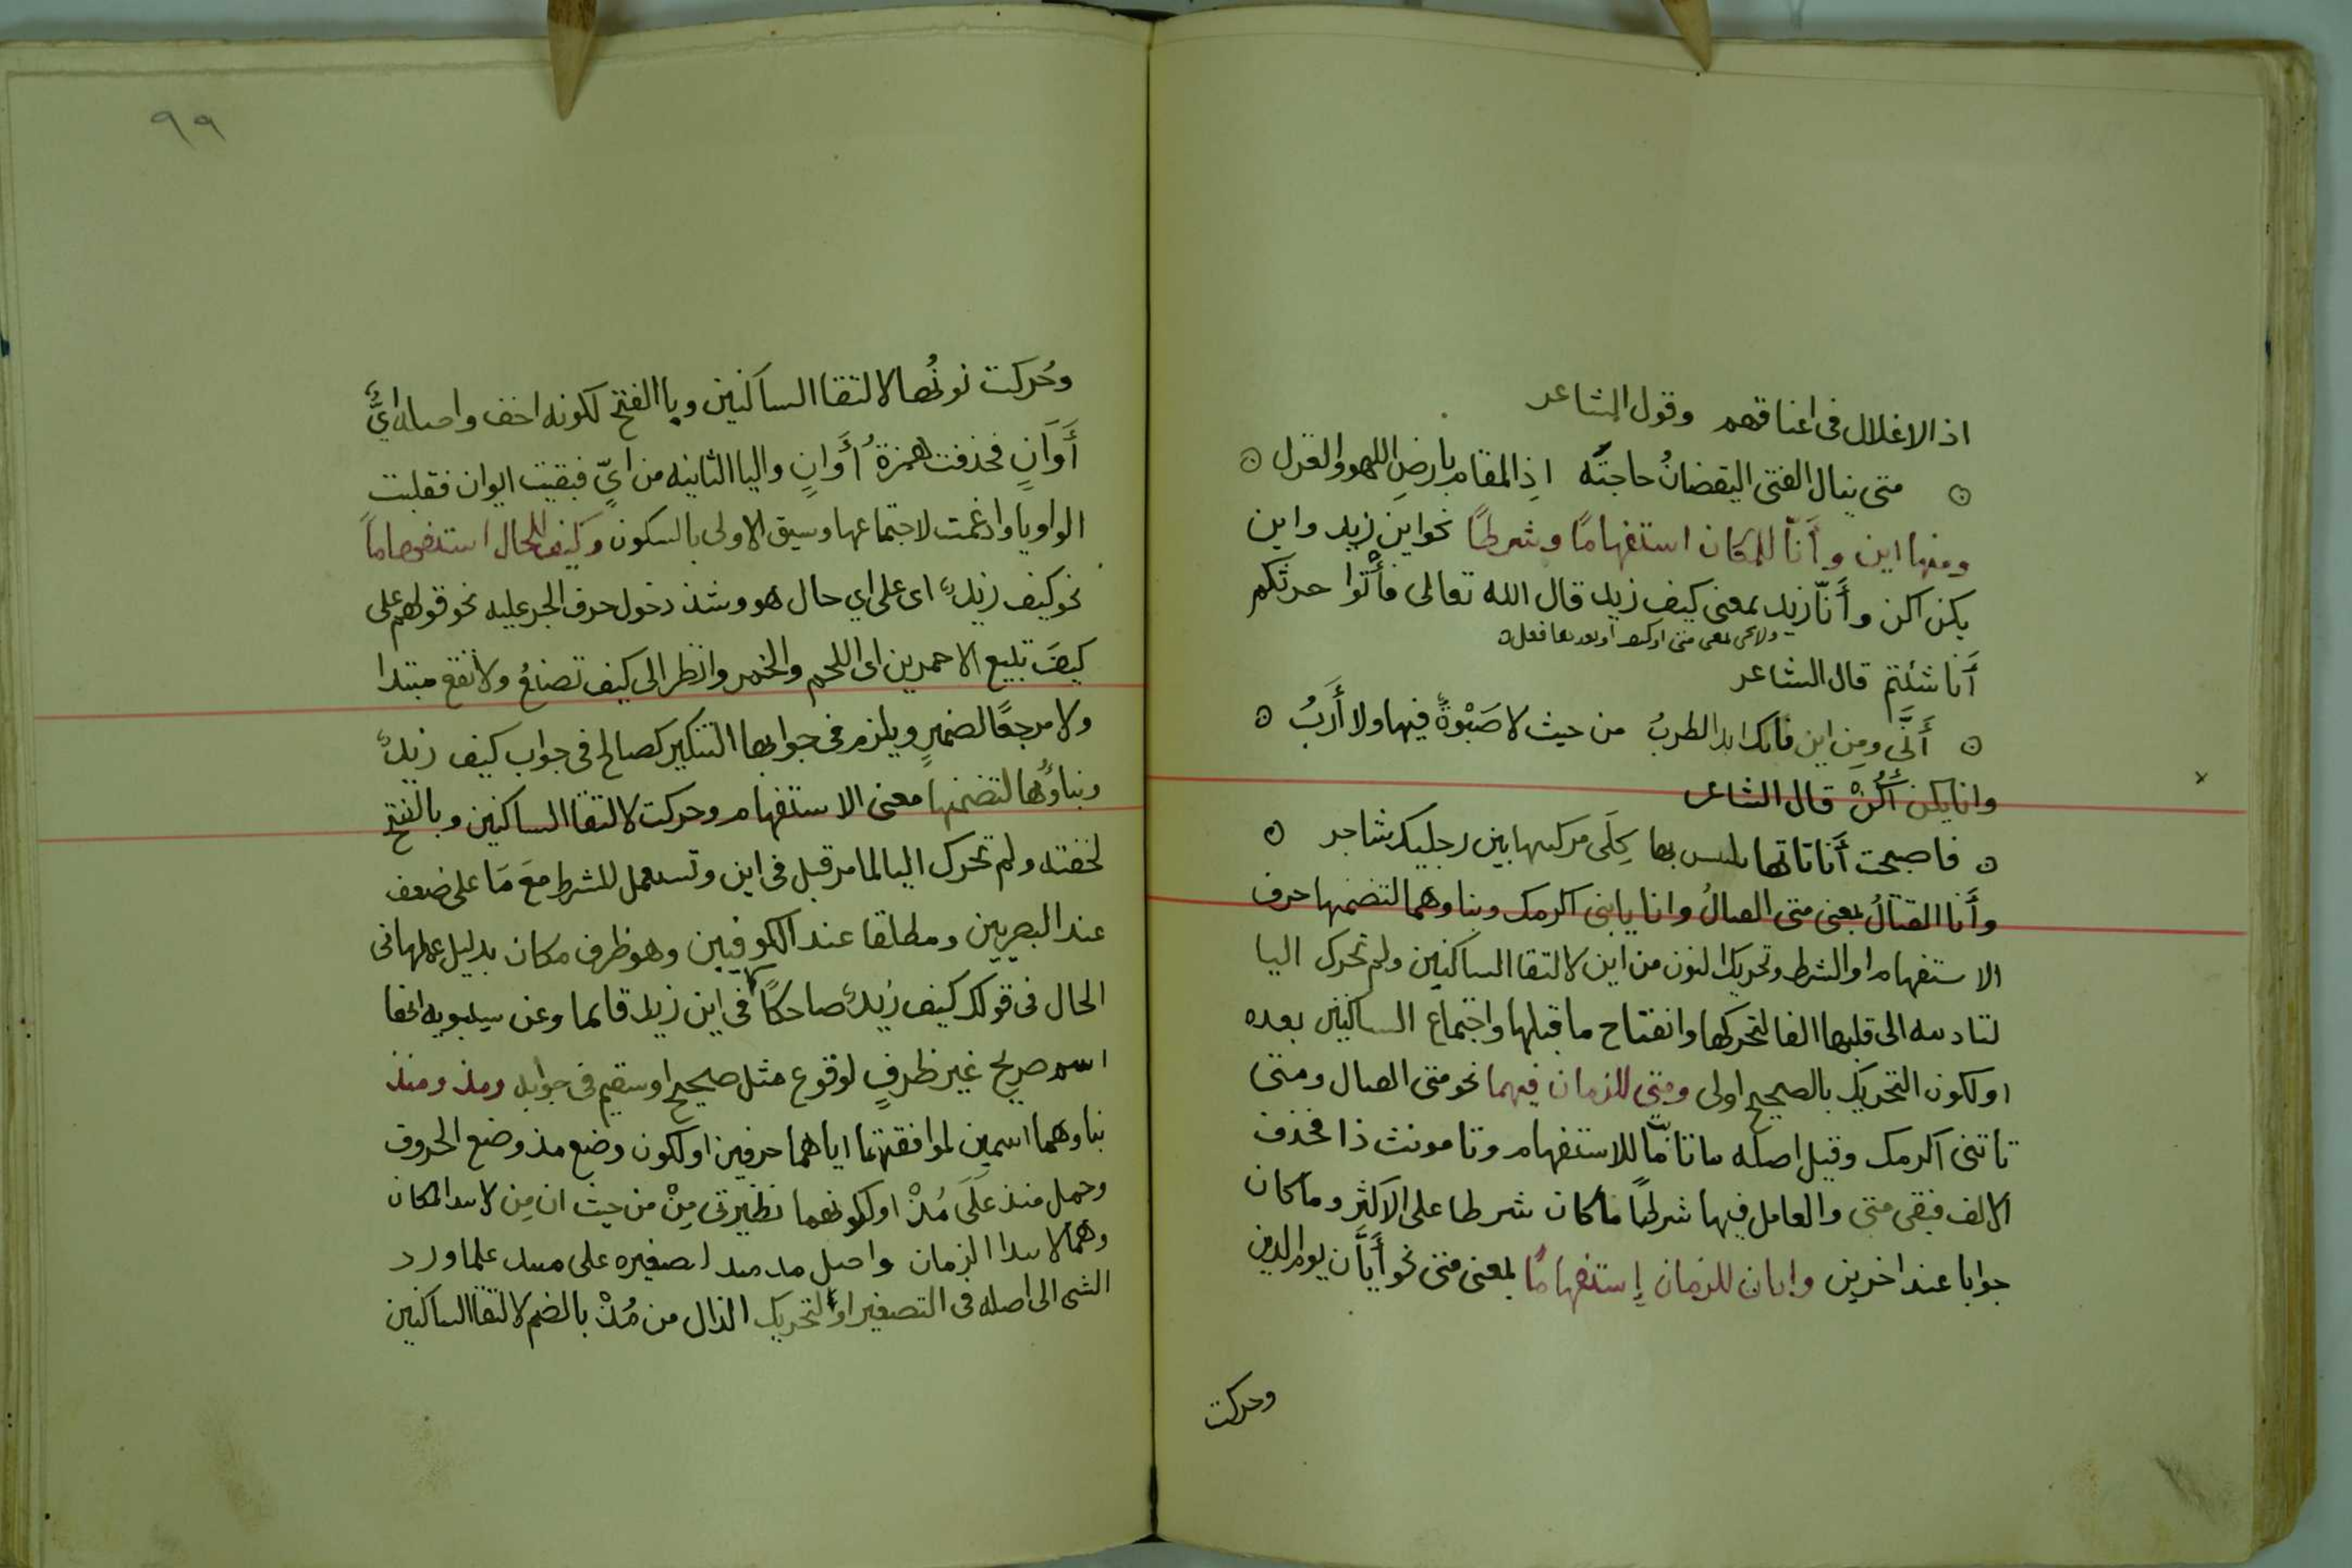 اذ الاغلال فى اعناقهم وقول الشاعر
متى ينال الفتى اليقضانُ حاجته اذِ المقام بارضِ اللهو والغزل
ومنها اين وأنّا للمكان استفهامًا وشرطًا نحو اين زيد واين
يكن اكن وأنّا زيد بمعنى كيف زيد قال الله تعالى فأتوا حرثكم
ولا تجى بمعنى متى او كيف او بعدها فعل
أنا شئتم قال الشاعر
أَنَّى ومِن اين الطربُ من حيث لا صَبْوةٌ فيها ولا أَرَبُ
وانا يكن أكُنْ قال الشاعر
فاصبحت أنا تاتها بها كِلَى مركبيها بين رجليك شاجر
وأنا القتالُ بمعنى متى القتالُ وانا ياتنى اكرمك وبناوهما لتضمنها حرف
الاستفهام او الشرط وتحريك النون من اين لالتقا الساكنين ولم تحرك اليا
لتاديته الى قلبها الفا لتحركها وانفتاح ما قبلها واجتماع الساكنين بعده
او لكون التحريك بالصحيح اولى ومتى للزمان فيهما نحو متى القتال ومتى
تاتنى اكرمك وقيل اصله ماتا مّا للاستفهام وتا مونث ذا فحذف
الالف فبقى متى والعامل فيها شرطًا ما كان شرطا على الاكثر وما كان
جوابا عند اخرين وايان للزمان إستفهامًا بمعنى متى نحو أيَّان يوم الدين
وحركت
٩٩
وحُركت نونُها لالتقا الساكنين وبا الفتح لكونه اخف واصله ايُّ
أَوَآنٍ فحذفت همزةُ أَوانٍ واليا الثانيه من ايّ فبقيت ايوان فقلبت
الواو يا وادغمت لاجتماعها وسبق الاولى بالسكون وكيف للحال استفهاماً
نحو كيف زيدٌ اى على اي حال هو وشذ دخول حرف الجر عليه نحو قولهم على
كيفَ تبيع الاحمرين اى اللحم والخمر وانظر الى كيف تصنعُ ولا تقع مبتدا
ولا مرجعًا لضميرٍ ويلزم فى جوابها التنكير كصالح فى جواب كيف زيدٌ
وبناؤُها لتضمنها معنى الاستفهام وحركت لالتقا الساكنين وبالفتح
لخفته ولم تحرك اليا لما مر قبل فى اين وتستعمل للشرط مَعَ مَا على ضعف
عند البصريين ومطلقا عند الكوفيين وهو ظرف مكان بدليل عملها فى
الحال فى قولك كيف زيدٌ ضاحكًا كما فى اين زيد قايما وعن سيبويه انها
اسم صريح غير ظرفٍ لوقوع مثل صحيح او سقيم فى جوابه ومذ ومنذ
بناوهما اسمين لموافقتهما اياهما حرفين او لكون وضع مذ وضع الحروف
وحمل منذ عَلَى مُذْ او لكونهما نظيرتى مِنْ من حيث ان مِن لابتدا المكان
وهما لابتدا الزمان واصل مذ منذ لتصغيره على منيذ علما ورد
الشى الى اصله فى التصغير او لتحريك الذال من مُذْ بالضم لالتقا الساكنين